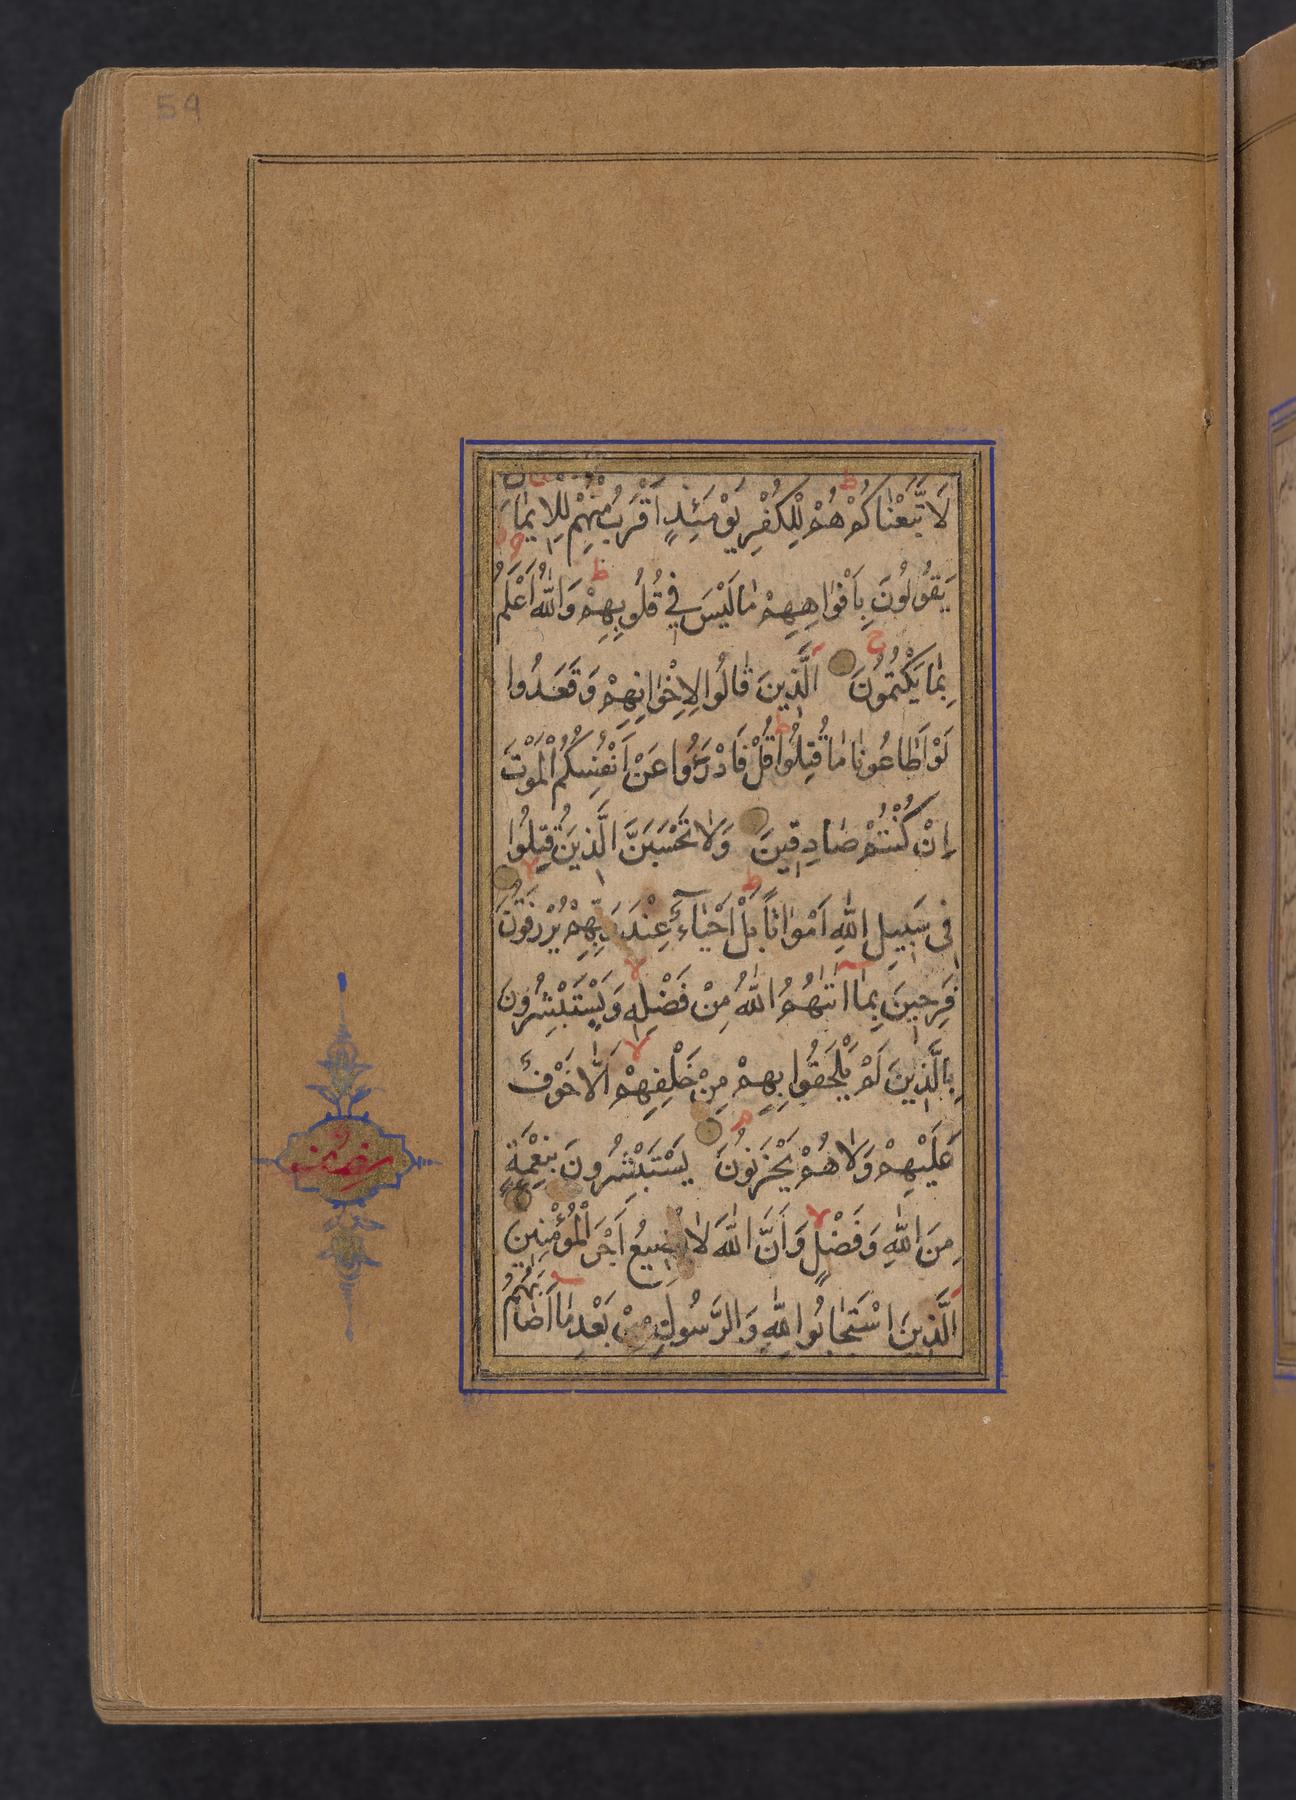 59
لَاتَّبَعْنَاكُمْ هُمْ لِلْكُفْرِ يَوْمَئِذٍ اَقْرَبُ مِنْهِمْ لِلْاِيمَانِ
يَقُولُونَ بِاَفْوَاهِهِمْ مَا لَيْسَ فِي قُلُوبِهِمْ وَاللّٰهُ اَعْلَمُ
بِمَا يَكْتُمُونَ اَلَّذِينَ قَالُوا لِاِخْوَانِهِمْ وَقَعَدُوا
لَوْ اَطَاعُونَا مَا قُتِلُوا قُلْ فَادْرَؤُا عَنْ اَنْفُسِكُمُ الْمَوْتَ
اِنْ كُنْتُمْ صَادِقِينَ وَلَا تَحْسَبَنَّ الَّذِينَ قُتِلُوا
فِي سَبِيلِ اللّٰهِ اَمْوَاتًا بَلْ اَحْيَآءٌ عِنْدَ رَبِّهِمْ يُرْزَقُونَ
فَرِحِينَ بِمَا اٰتٰهُمُ اللّٰهُ مِنْ فَضْلِهِ وَيَسْتَبْشِرُونَ
بِالَّذِينَ لَمْ يَلْحَقُوا بِهِمْ مِنْ خَلْفِهِمْ اَلَّا خَوْفٌ
عَلَيْهِمْ وَلَا هُمْ يَحْزَنُونَ يَسْتَبْشِرُونَ بِنِعْمَةٍ
مِنَ اللّٰهِ وَفَضْلٍ وَاَنَّ اللّٰهَ لَا يُضِيعُ اَجْرَ الْمُؤْمِنِينَ
اَلَّذِينَ اسْتَجَابُوا لِلّٰهِ وَالرَّسُولِ مِنْ بَعْدِ مَا اَصَابَهُمُ